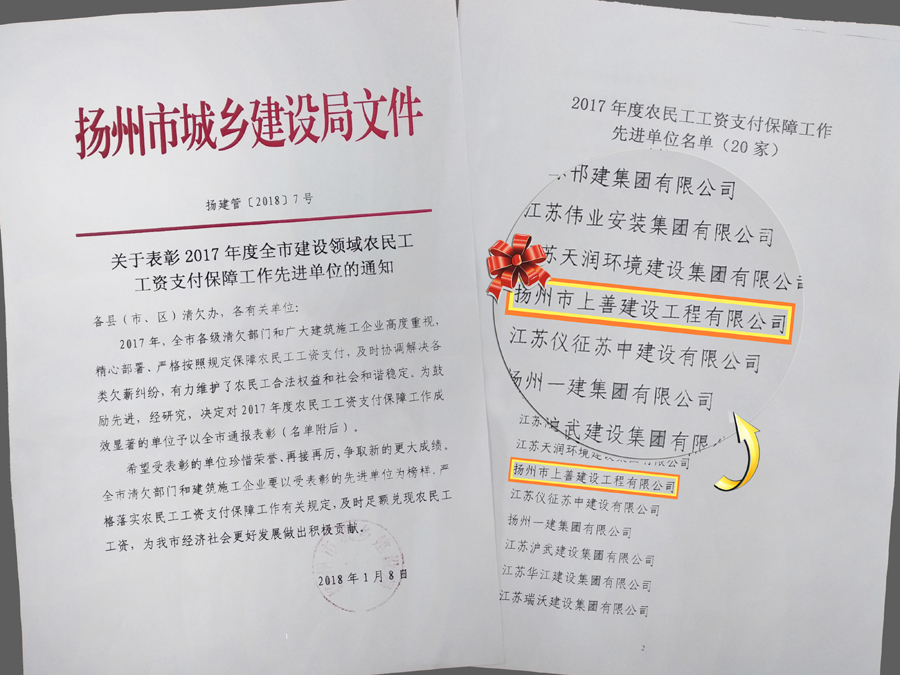 扬州市城乡建设局文件
扬建管〔2018〕7号
关于表彰2017年度全市建设领域农民工
工资支付保障工作先进单位的通知
各县（市、区）清欠办，各有关单位：
2017年，全市各级清欠部门和广大建筑施工企业高度重视，
精心部署、严格按照规定保障农民工工资支付，及时协调解决各
类欠薪纠纷，有力维护了农民工合法权益和社会和谐稳定。为鼓
励先进，经研究，决定对2017年度农民工工资支付保障工作成
效显著的单位予以全市通报表彰（名单附后）。
希望受表彰的单位珍惜荣誉、再接再厉，争取新的更大成绩。
全市清欠部门和建筑施工企业要以受表彰的先进单位为榜样，严
格落实农民工工资支付保障工作有关规定，及时足额兑现农民工
工资，为我市经济社会更好发展做出积极贡献。
2018年1月8日
2017年度农民工工资支付保障工作
先进单位名单（20家）
邗建集团有限公司
江苏伟业安装集团有限公司
苏天润环境建设集团有限公
扬州市上善建设工程有限公司
江苏仪征苏中建设有限公司
扬州一建集团有限公司
江苏沪武建设集团有限
江苏天润环境建设集团有限公司
扬州市上善建设工程有限公司
江苏仪征苏中建设有限公司
扬州一建集团有限公司
江苏沪武建设集团有限公司
江苏华江建设集团有限公司
江苏瑞沃建设集团有限公司
2